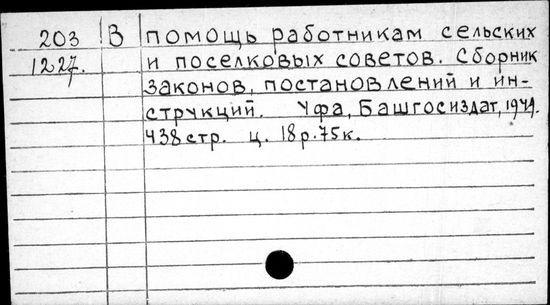 203 В помощь работникам сельских
1227. и поселковых советов. Сборник
законов, постановлений и ин-
струкций. Уфа, Башгосиздат,
438 стр. ц. 18р.75к.